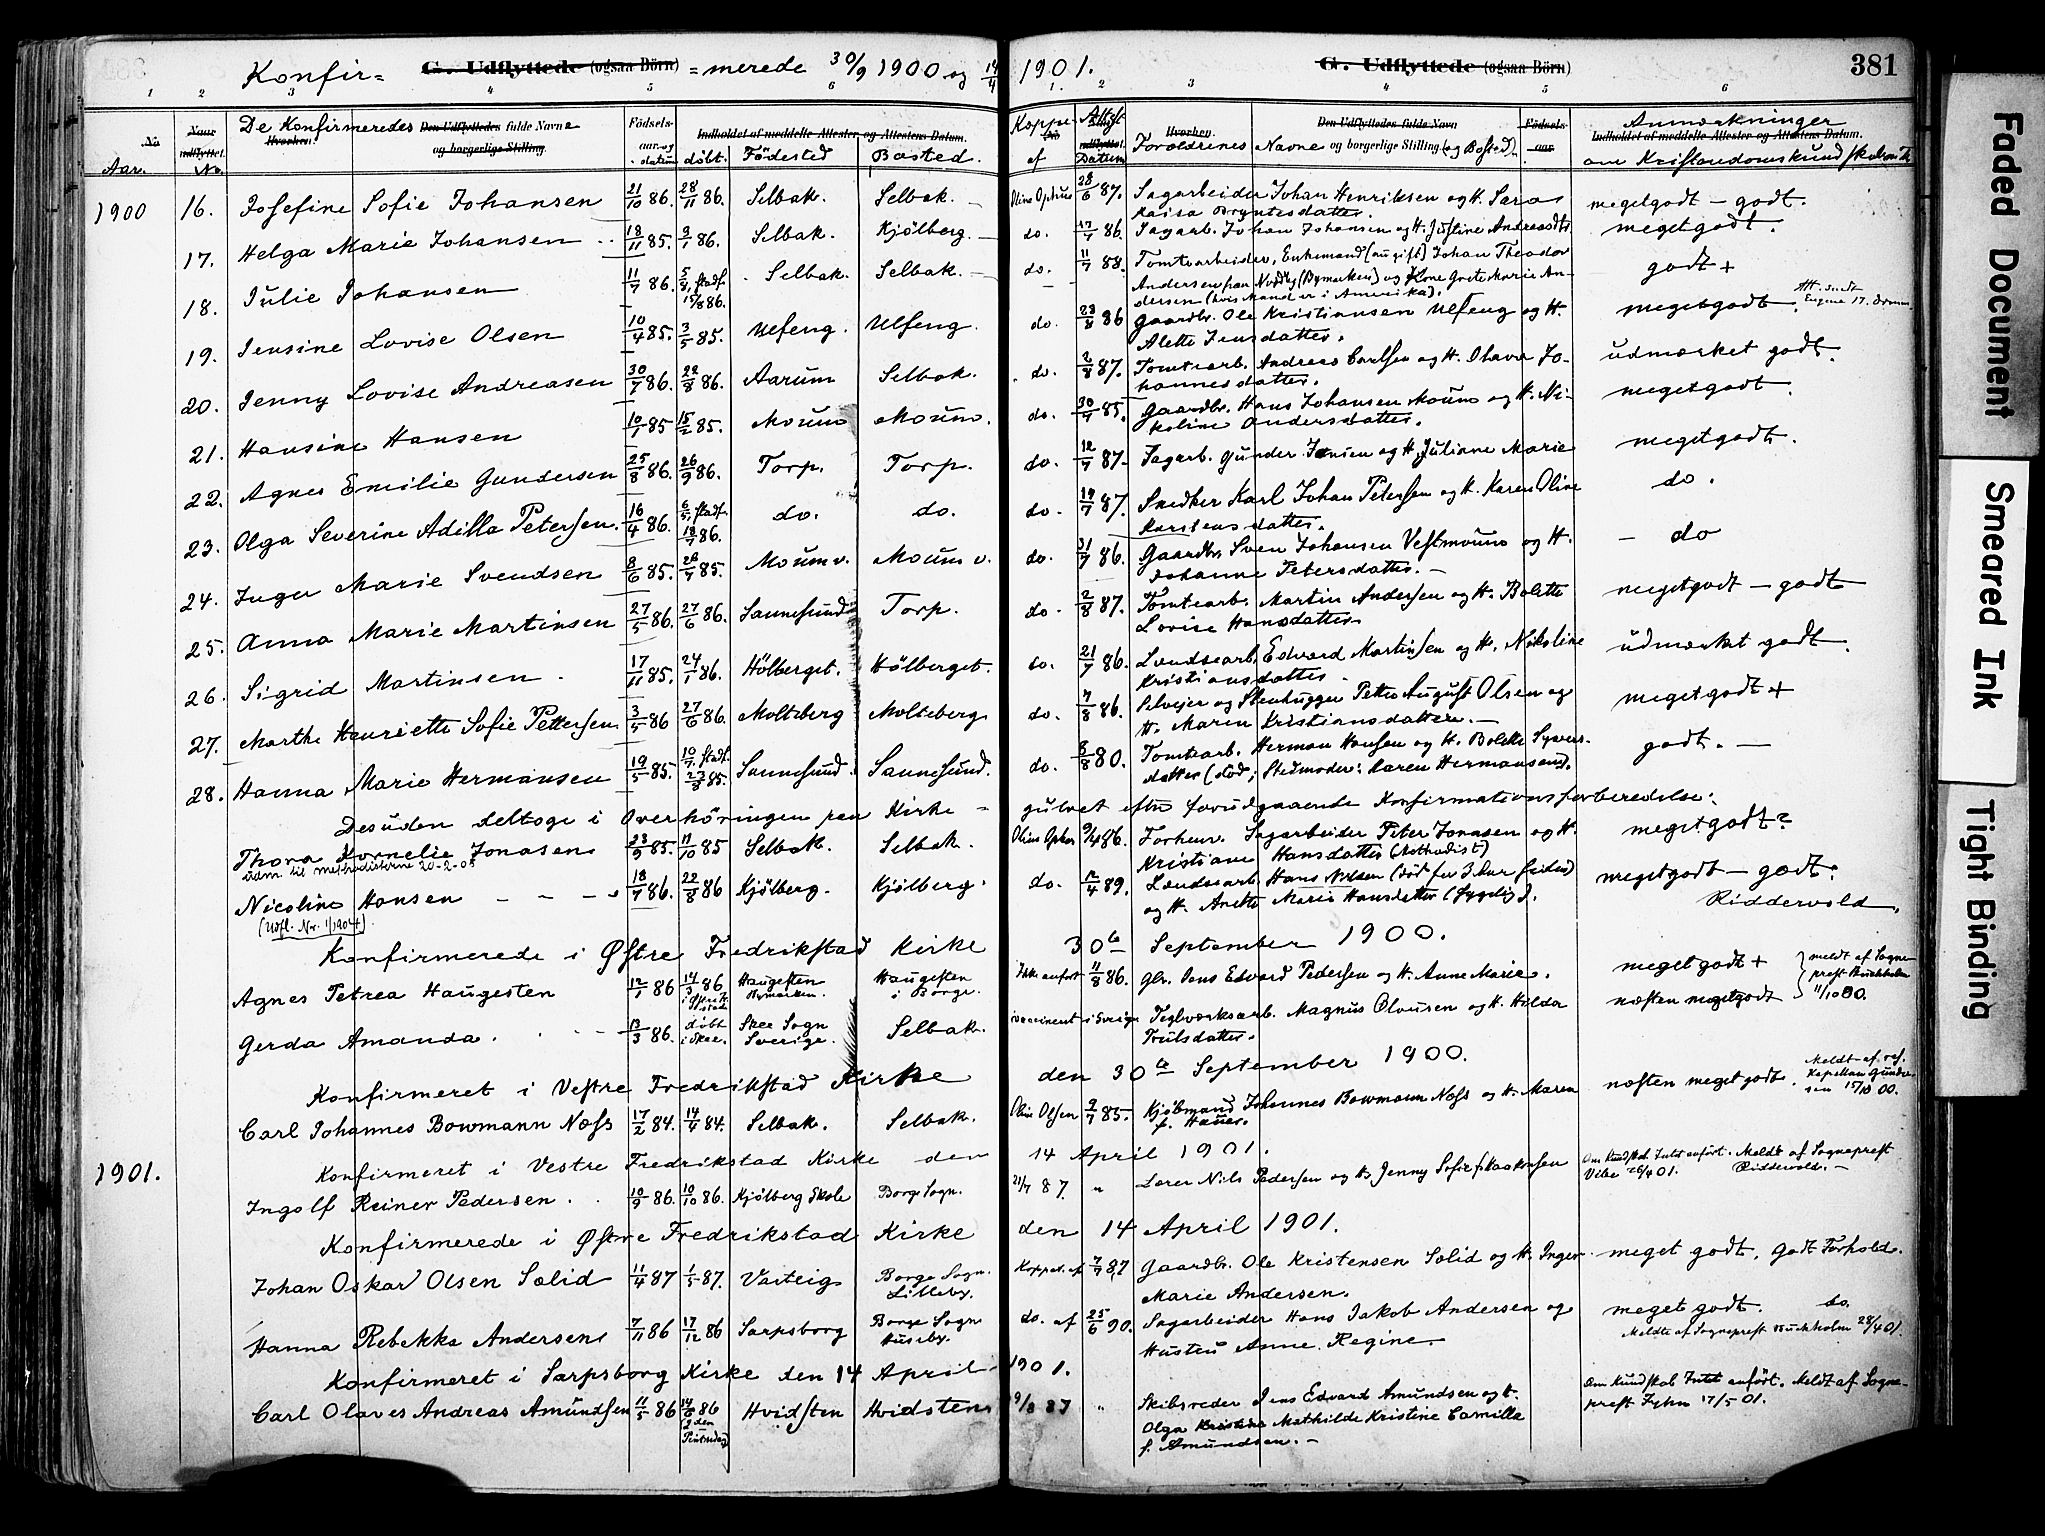 Konfir= G. Udflyttede (ogsaa Börn) =merede 30/9 1900 og 14/4 1901. G. Udflyttede (ogsaa Börn) 381
1 2 3 4 5 6 1. 2 3 4 5 6
Aar. No Naar udflyttet. No. De Konfirmeredes Hvorhen. Den Udflyttedes fulde Navne og borgerlige Stilling. Födsels- aar og datum döbt. Indholdet af meddelte Attester og Attestens Datum. Födested Bosted. Koppe af Attest udflyttet. Datum Hvorhen. Forældrenes Navne Den Udflyttedes fulde Navn og borgerlige Stilling (og Bosted). Födsels- aar Anmærkninger Indholdet af meddelte Attester og Attestens Datum. om Kristendomskundskaben
1900 16. Josefine Sofie Johansen 21/10 86. 28/11 86. Selbak. Selbak. 28/6 87. Sagarbeider Johan Henriksen og H. Sara
Kaisa Bryntesdatter. megetgodt - godt.
17. Helga Marie Johansen 18/11 85. 3/1 86. Selbak. Kjölberg. do. 17/7 86. Sagarb. Johan Johansen og H. Justine Andreasdtr megetgodt.
18. Julie Johansen 11/7 86. 5/9, stadf. 15/8 86. Selbak. Selbak. do. 11/7 88. Tomtearbeider, Enkemand (angift) Johan Theodor
Andersen fra (Bymarken) og Kone Grete Marie An-
dersen (hvis Mand er i Amerika). godt +
19. Jensine Lovise Olsen 10/4 85. 3/5 85. Ulfeng. Ulfeng. do. 23/8 86 Gaardbr. Ole Kristiansen Ulfeng og H.
Alette Jensdatter. megetgodt.
20. Jenny Lovise Andreasen 30/7 86. 22/8 86. Aarum Selbak. do. 2/8 87. Tomtearb. Andreas Carlsen og H. Olava Jo-
hannesdatter. udmærket godt.
21. Hansine Hansen 10/1 85 15/2 85. Moum Moum. do. 30/7 85. Gaardbr. Hans Johansen Moum og H. Ni-
koline Andersdatter. megetgodt.
22. Agnes Emilie Gundersen 25/8 86. 26/9 86. Torp. Torp. do. 12/7 87. Sagarb. Gunder Jensen og H. Juliane Marie megetgodt.
23. Olga Severine Adilla Petersen. 16/4 86. 6/5, stadf. 18/7 86. do. do. do. 19/7 87. Snedker Karl Johan Petersen og H. Karen Oline
Karstensdatter. do.
24. Inger Marie Svendsen 8/6 85. 26/7 85. Moum v. Moum v. do. 31/7 86. Gaardbr. Sven Johansen Vestmoum og H.
Johanne Petersdatter. - - do
25. Anna Marie Martinsen 27/5 86. 27/6 86. Sannesund Torp. do. 2/8 87. Tomtearb. Martin Andersen og H. Bolette
Lovise Hansdatter megetgodt - godt
26. Sigrid Martinsen. 17/11 85. 24/1 86. Hölberget. Hölberget. do. 21/7 86. Landsearb. Edvard Martinsen og H. Nikoline
Kristiansdatter. udmærket godt
27. Marthe Henriette Sofie Pettersen 3/5 86 27/6 86. Molteberg Molteberg do. 7/8 86. Selveier og Stenhugger Petter August Olsen og
H. Maren Kristiansdatter. - megetgodt +
28. Hanna Marie Hermansen 19/5 85. 10/7. stadf. 23/8 85. Sannesund. Sannesund. do. 8/8 80. Tomtearb. Herman Hansen og H. Bolette Syvers-
datter (död; Stedmoder: Karen Hermansen). godt. -
Desuden deltoge i Overhöringen paa Kirke - gulvet efter forudgaaende Konfirmationsforberedelse:
Thora Kornelie Jonasen 23/9 85. 11/10 85 Selbak. Selbak. 9/4 86. Forhenv. Sagarbeider Peter Jonasen og H.
Kristiane Hansdatter (Methodist) megetgodt?
udm til methodisterne 20-2-05
Nicoline Hansen - - - 18/7 86. 22/8 86 Kjölberg. Kjölberg. do. 12/4 89. Landsearb. Hans Nilsen (död for 3 Aar siden)
og H. Anette Marie Hansdatter (Sygelig). megetgodt - godt.
(Udfl. Nr. 1/1904) Riddervold.
Konfirmerede i Østre Fredrikstad Kirke 30te September 1900.
Agnes Petrea Haugesten 12/1 86 14/3 86 Haugesten Bymarken. Haugesten i Borge. Ikke anført 11/8 86. Gbr. Jens Edvard Pedersen og H. Anne Marie. meget godt + meldt af Sogne-
prest Buckholm
11/10 00.
Gerda Amanda. 13/3 86. döbt i Skee. Skee Sogn Sverige. Selbak. vaccineret i Sverige Teglværksarb. Magnus Olausen og H. Hilda
Trulsdatter. næsten megetgodt
Konfirmeret i Vestre Fredrikstad Kirke den 30te September 1900.
Carl Johannes Bowmann Næss 17/2 84. 14/4 84. Selbak. Selbak. Olin Olsen 9/7 85. Kjøbmand Johannes Bowmann Næss og H. Maren
f. Hauer. næsten meget godt. Meldt af res.
Kapellan Gunder-
sen 15/10 00.
1901. Konfirmeret i Vestre Fredrikstad Kirke den 14 April 1901.
Ingolf Reiner Pedersen. 10/9 86. 10/10 86. Kjölberg Skole Borge Sogn. 21/7 87. " Lærer Nils Pedersen og H. Jenny Sofie f. Haakonsen Om Kundskab Intet anført. Meldt af Sogneprest
Vibe 26/4 01. Riddervold. -
Konfirmerede i Østre Fredrikstad Kirke den 14 April 1901.
Johan Oskar Olsen Solid 11/4 87 1/5 87. Varteig Borge Sogn. Lilleby. Koppet af 7/7 87 Gaardbr. Ole Kristensen Solid og H. Inger
Marie Andersen. meget godt. Godt Forhold.
Hanna Rebekka Andersen 7/11 86 17/12 86 Sarpsborg Borge Sogn Huseby. do. af 25/6 90. Sagarbeider Hans Jakob Andersen og
Hustru Anne Regine. meget godt. do.
Meldt af Sogneprest Buckholm 28/4 01.
Konfirmeret i Sarpsborg Kirke den 14 April 1901.
Carl Olaves Andreas Amundsen 11/5 86 14/6 86 2den Pintsedag Hvidsten Hvidsten 19/8 87 " Skibsreder Jens Edvard Amundsen og H.
Olga Kristine Mathilde Kristine Camilla
f. Amundsen. - Om Kundskab Intet anført. Meldt af Sogne-
prest 17/5 01.
Faded Document
Smeared Ink
Tight Binding